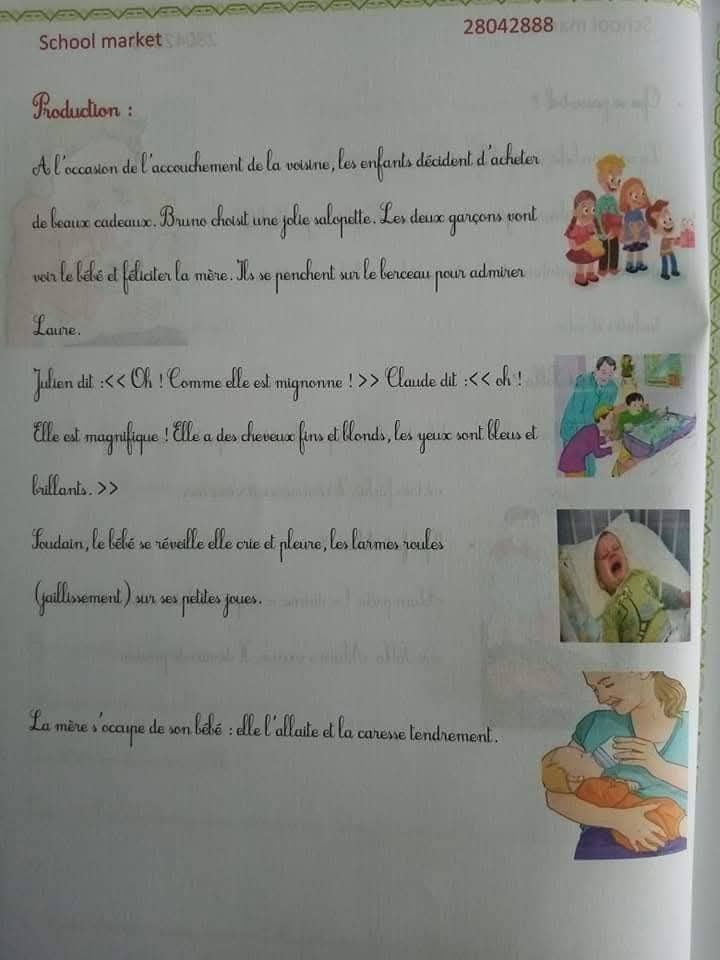 School market
28042888
Production :
A l'occasion de l'accouchement de la voisine, les enfants décident d'acheter
de beaux cadeaux. Bruno choisit une jolie salopette. Les deux garçons vont
voir le bébé et féliciter la mère. Ils se penchent sur le berceau pour admirer
Laure.
Julien dit :<< Oh ! Comme elle est mignonne ! >> Claude dit :<< oh !
Elle est magnifique ! Elle a des cheveux fins et blonds, les yeux sont bleus et
brillants. >>
Soudain, le bébé se réveille elle crie et pleure, les larmes roules
(jaillissement) sur ses petites joues.
La mère s'occupe de son bébé : elle l'allaite et la caresse tendrement.